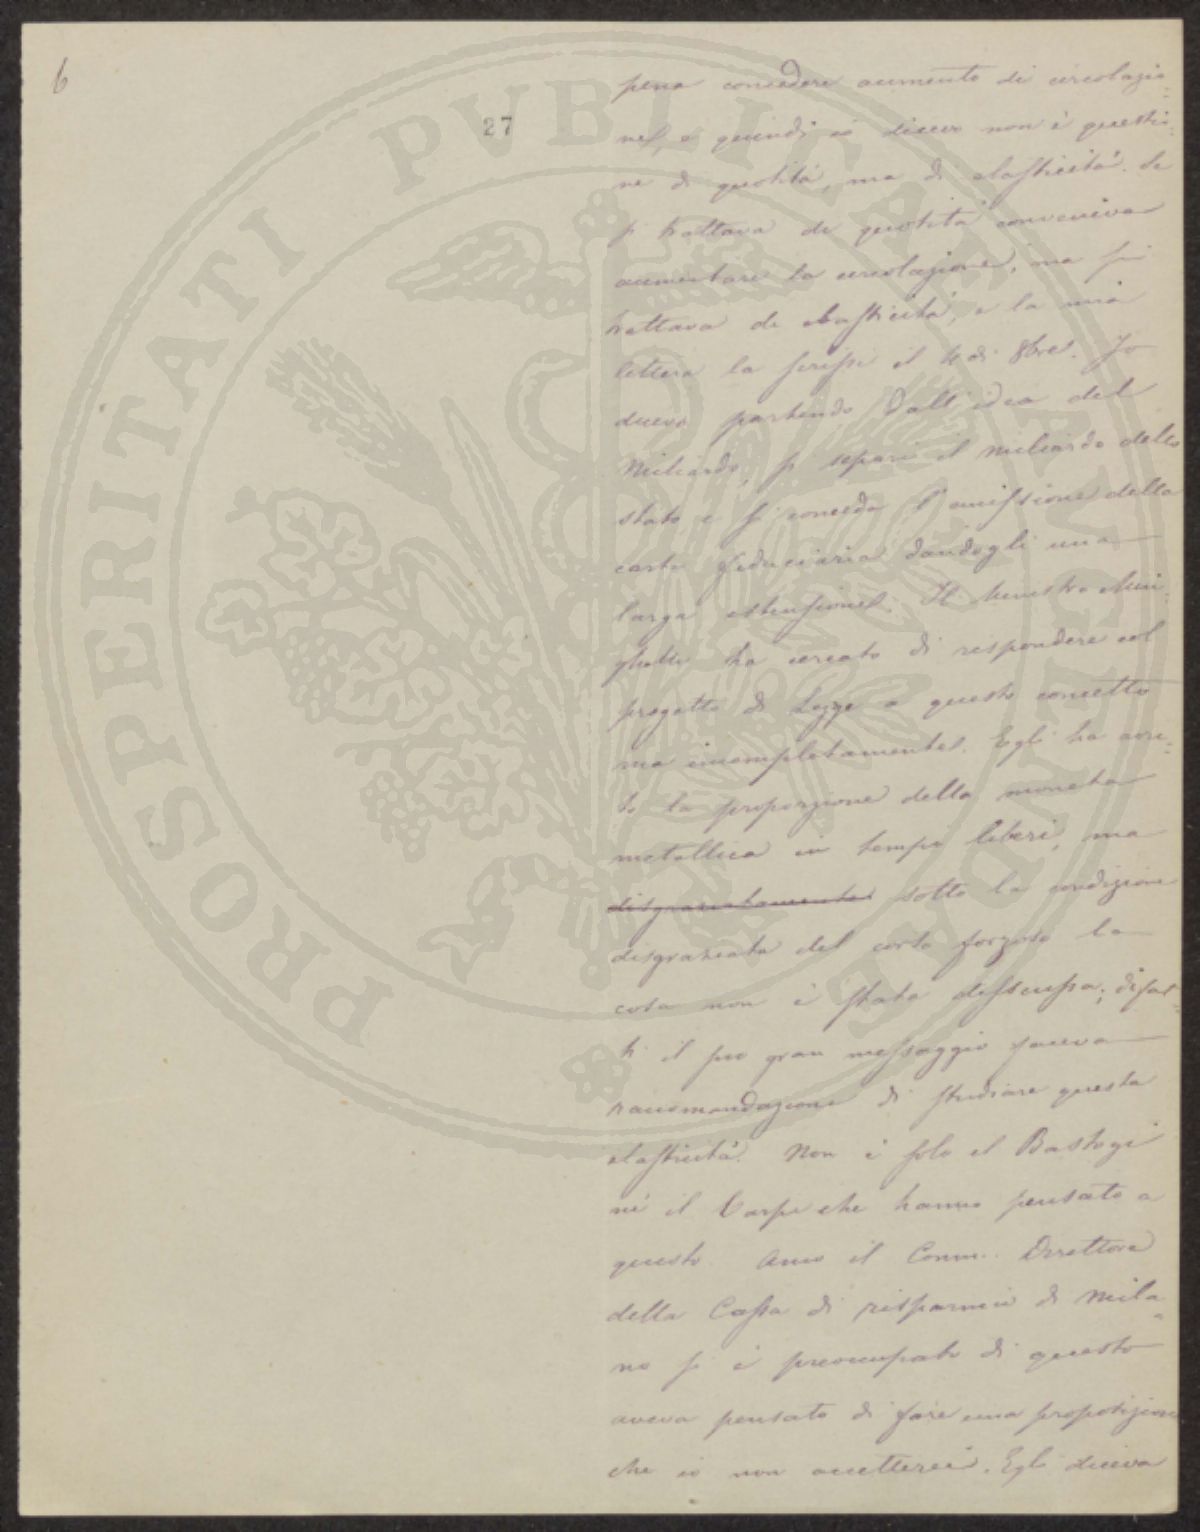 6
27
PROSPERITATI PVBLICAE AVGENDAE
pena concedere aumento di circolazio=
ne, e quindi io dicevo non è questio=
ne di quotità, ma di elasticità. Se
si trattava di quotità conveniva
aumentare la circolazione, ma si
trattava di elasticità, e la mia
lettera la scrissi il di 8bre. Io
dicevo partendo dall'idea del
Miliardo, si separi il miliardo dello
stato e si conceda l'emissione della
carta fiduciaria dandogli una
larga estensione. Il Ministro Min=
ghetti ha cercato di rispondere col
progetto di Legge a questo concetto
ma incompletamente. Egli ha avu=
to la proporzione della moneta
metallica in tempi liberi, ma
disgraziatamente sotto la condizione
disgraziata del corso forzoso la
cosa non è stata discussa; difat=
ti il suo gran messaggio faceva
raccomandazione di studiare questa
elasticità. Non è solo il Bastogi
nè il Carpi che hanno pensato a
questo. Anco il Comm. Direttore
della Cassa di risparmio di Mila=
no si è preoccupato di questo
aveva pensato di fare una proposizione
che io non accetterei. Egli diceva